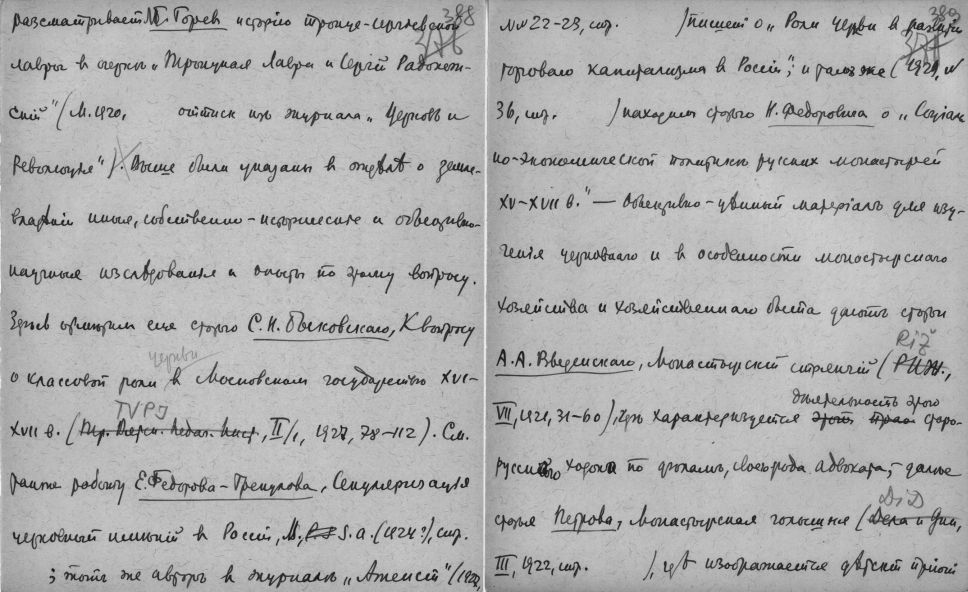 388
разсматриваетъ М. Горев исторію троице-сергіевской
376
лавры в очеркѣ „Троицкая Лавра и Сергій Радонеж-
скій" (М. 1920, оттиск изъ журнала „Церковь и
Революція"). Выше были указаны в отдѣлѣ о земле-
владѣніи иныя, собственно-историческія и объективно-
научныя изслѣдованія и опыты по этому вопросу.
Здѣсь отмѣтим еще статью С. Н. Быковскаго, К вопросу
церкви
о классовой роли в Московском государствѣ XVI-
TVPJ
XVII в. (Тр. Вятск. Педаг. Инст., II/1, 1927, 78-112). См.
также работу Е. Федорова-Грекулова, Секуляризація
церковных имѣній в России, М., s. a. (1924?), стр.
; тотъ же авторъ в журналѣ „Атеист" (192
389
№№ 22-23, стр. ) пишет о „Роли церкви в развитіи
377
торговаго капитализма в Россіи"; и тамъ же (1929, №
36, стр. ) находимъ статью Н. Федоровича о „Соціаль
но-экономической политикѣ русских монастырей
XV-XVII в." — Объективно-цѣнный матеріалъ для изу-
ченія церковнаго и в особенности монастырскаго
хозяйства и хозяйственнаго быта даютъ статьи
RiŽ
А. А. Введенскаго, Монастырскій стряпчій (РИЖ.,
дѣятельность этого
VII, 1921, 31-60), гдѣ характеризуется этот старо-
русскаго ходока по дѣламъ, своего рода адвоката, далѣе
DiD
статья Петрова, Монастырская голытьня (Дела и Дни,
III, 1922, стр. ), гдѣ изображается дѣтскій пріют